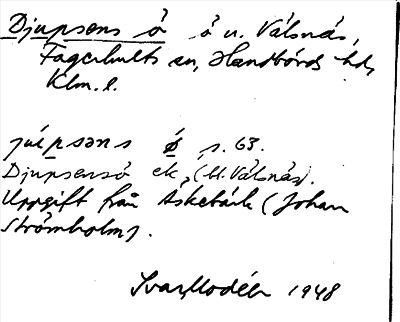 Djupsens å å u. Välsnäs,
Fagerhults sn, Handbörds hd,
Klm. l.
jùpsəns ǿ s. 63.
Djupsenså ek. (U. Välsnäs).
Uppgift från Äskebäck (Johan
Strömholm).
Ivar Modéer 1948